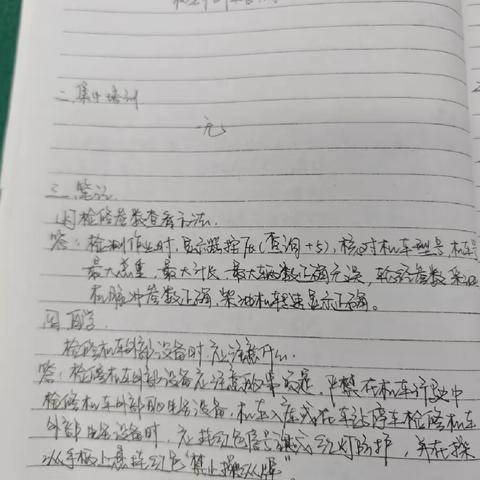 二、集中培训
无
三、笔记
问检修参数查看方法.
答:检测作业时,显示器按压(查询+5),核对机车型号,机车号
最大总重,最大计长,最大辆数正确无误,轮径参数,柴油
机脉冲参数正确,柴油机转速显示正确。
四、自学.
检修机车外部设备时应注意什么.
答:检修机车外部设备应注意的事项是,严禁在机车行驶中
检修机车外部的生活设备,机车入库或在车站停车检修机车
外部生活设备时,应挂红色信号旗或红灯防护,并在操
纵手柄上悬挂红色"禁止操纵牌"